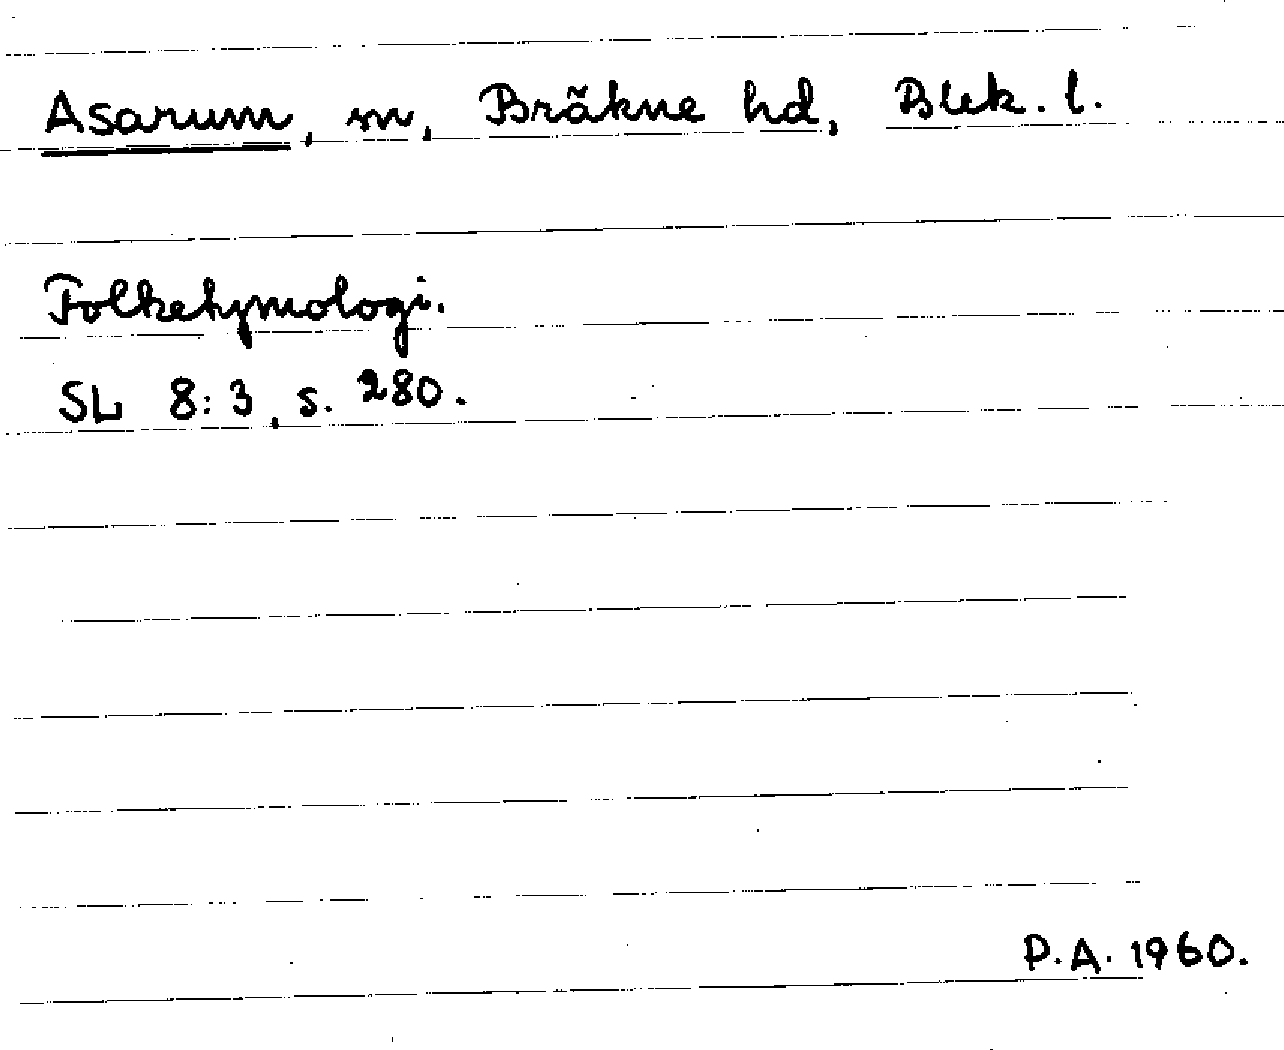 Asarum, m, Bräkne hd, Blek. l.
Folketymologi.
SL 8:3, s. 280.
P.A. 1960.